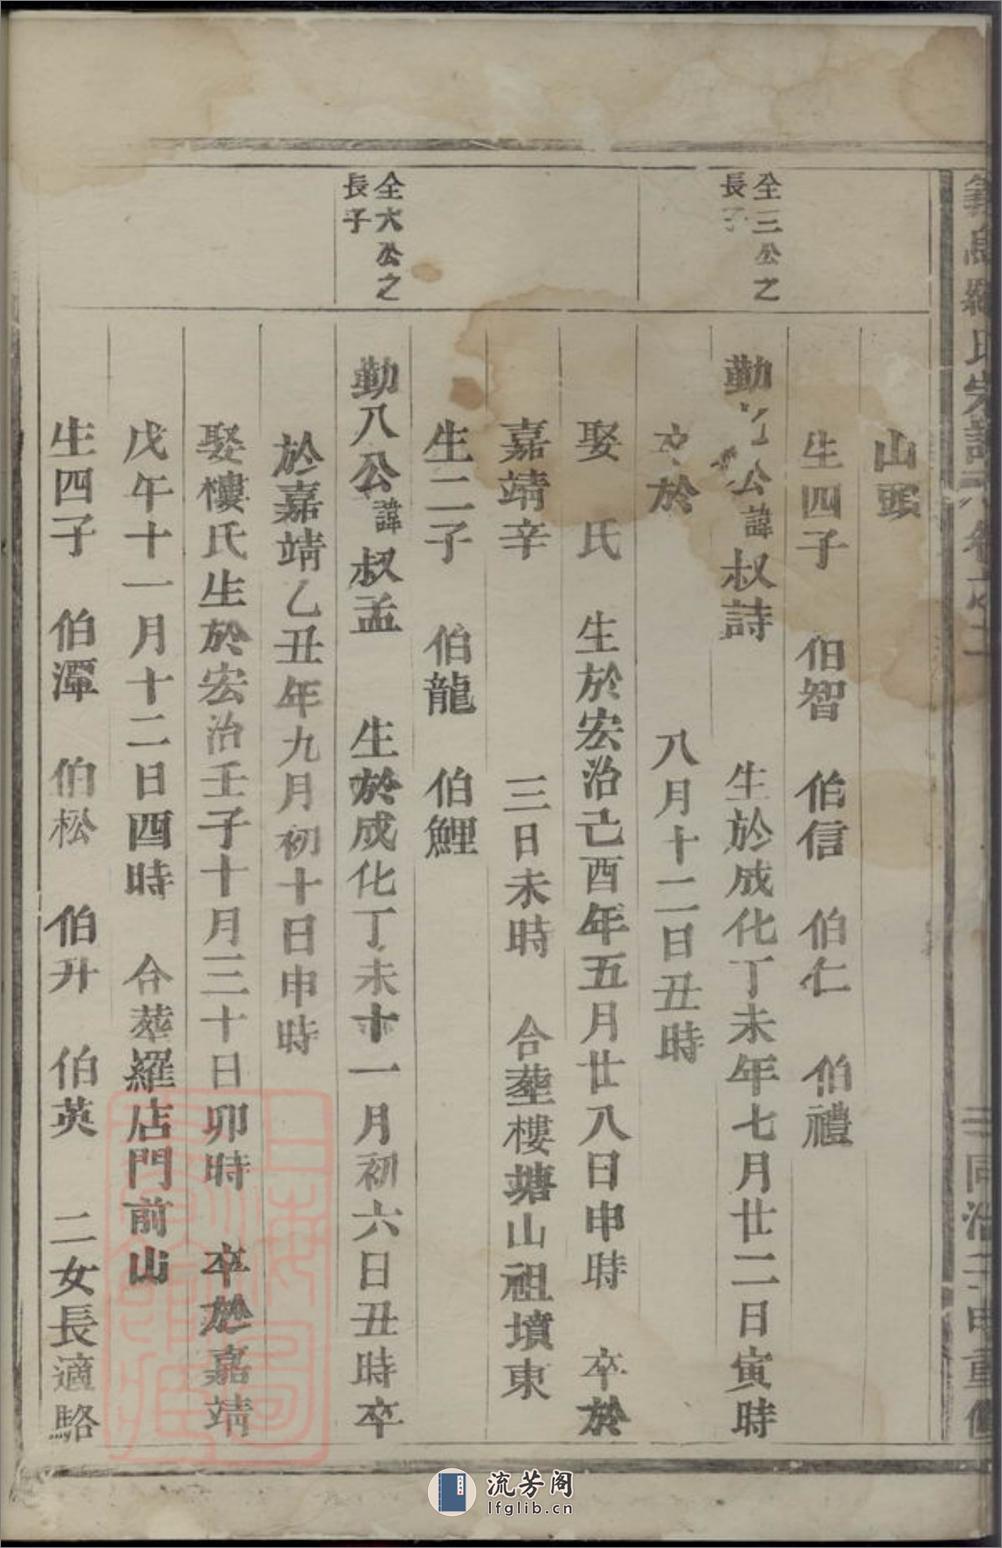 氏宗譜
山頭
生四子 伯智 伯信 伯仁 伯禮
仝三公之
長子
勤 公諱叔詩 生於成化丁未年七月廿二日寅時
卒於 八月十二日丑時
娶 氏 生於宏治己酉年五月廿八日申時 卒於
嘉靖辛 三日未時 合塟樓塘山祖墳東
生二子 伯龍 伯鯉
仝六公之
長子
勤八公諱叔孟 生於成化丁未十一月初六日丑時卒
於嘉靖乙丑年九月初十日申時
娶樓氏生於宏治壬子十月三十日卯時 卒於嘉靖
戊午十一月十二日酉時 合塟羅店門前山
生四子 伯潭 伯松 伯升 伯英 二女長適駱
流芳阁
lfglib.cn